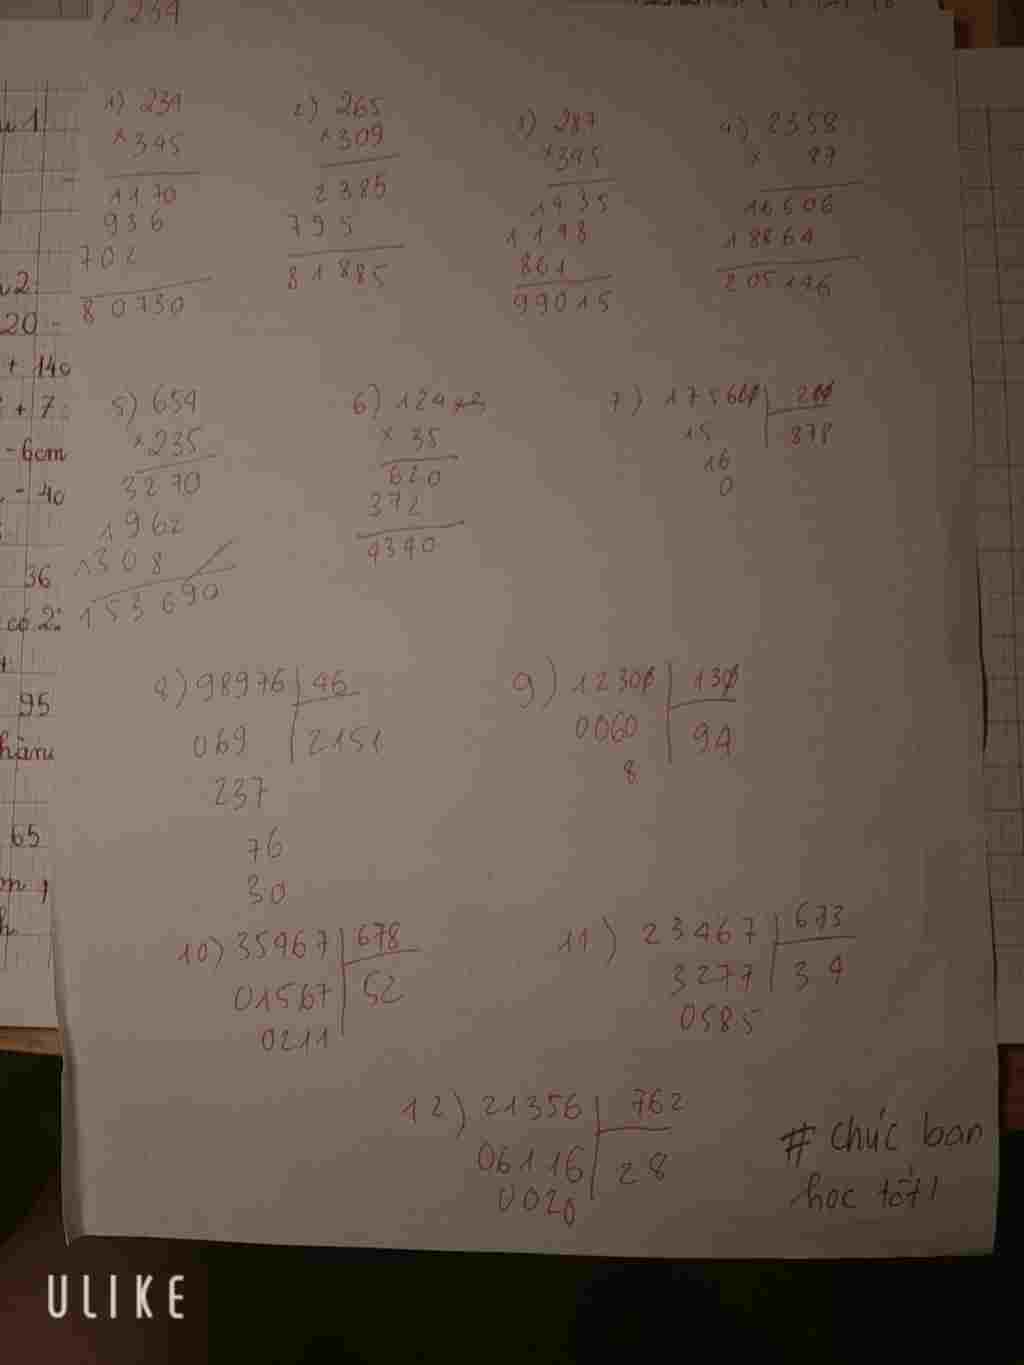 7239
1) 234
× 345
1170
936
702
80730
2) 265
× 309
2385
795
81885
3) 287
× 345
1435
1148
861
99015
4) 2358
× 87
16506
18864
205146
5) 654
× 235
3270
1962
1308
153690
6) 124
× 35
620
372
4340
7) 175600 200
15 878
16
0
8) 98976 46
069 2151
237
76
30
9) 12300 130
0060 94
8
10) 35467 678
01567 52
0211
11) 23467 673
3277 34
0585
12) 21356 762
06116 28
0020
# chúc bạn
học tốt!
20 -
+ 140
+ 7:
- 6cm
- 40
36
có 2:
95
65
ULIKE